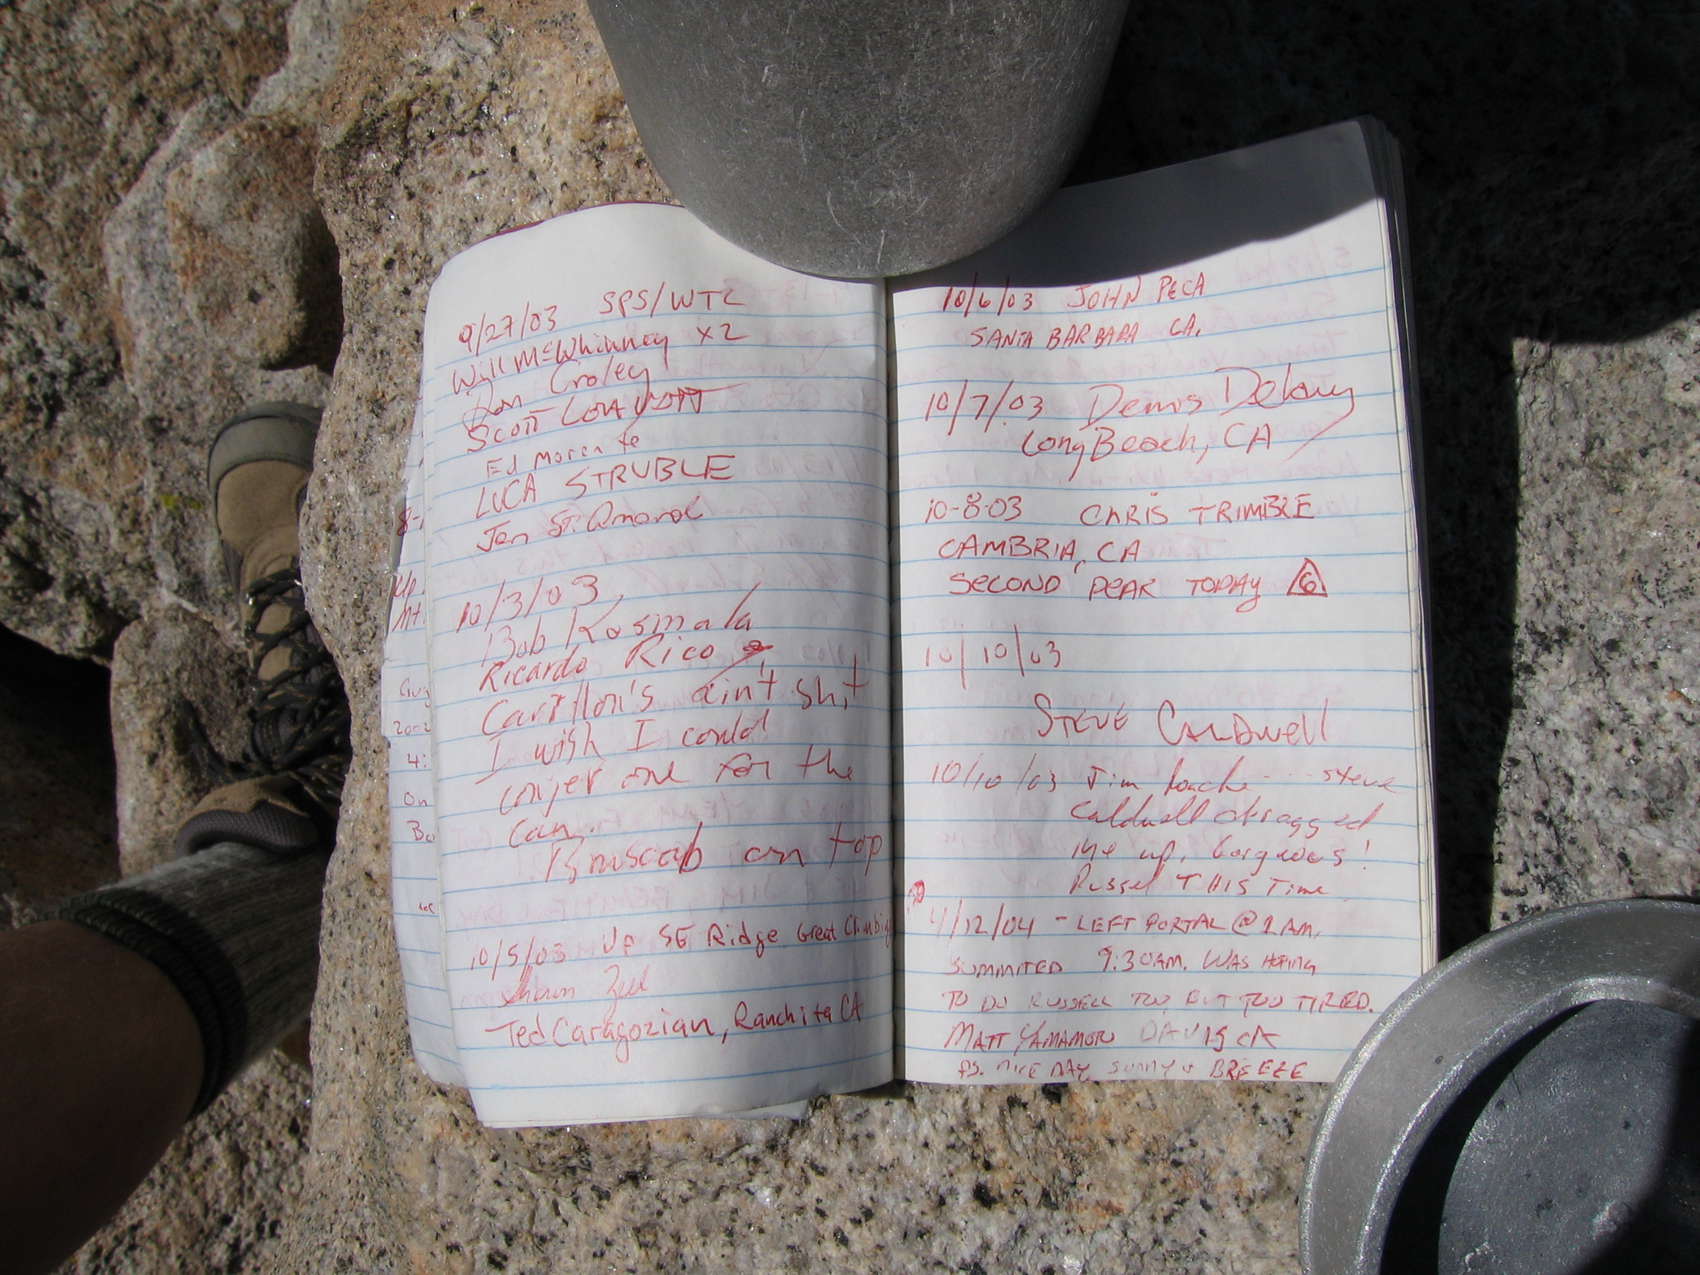 9/27/03 SPS/WTC
Will McWhinney x2
Ron Croley
Scott
Ed Morente
LUCA STRUBLE
Jen St. Amand
10/3/03
Bob Kosmala
Ricardo Rico
ain't shit
I wish I could
one for the
can.
on top
10/5/03 Up SE Ridge Great Climbing
Ted Caragozian, Ranchita CA
10/6/03 JOHN PECA
SANTA BARBARA CA.
10/7/03 Denis
Long Beach, CA
10-8-03 CHRIS TRIMBLE
CAMBRIA, CA
SECOND PEAK TODAY 6
10/10/03
STEVE CALDWELL
10/10/03 Jim ... Steve
Caldwell dragged
me up, Gorgeous!
Russel THIS Time
4/12/04 - LEFT PORTAL @ 1 AM.
SUMMITED 9:30AM. WAS HOPING
TO DO RUSSELL TOO, BUT TOO TIRED.
MATT YAMAMOTO DAVIS CA
PS. NICE DAY, SUNNY + BREEZE